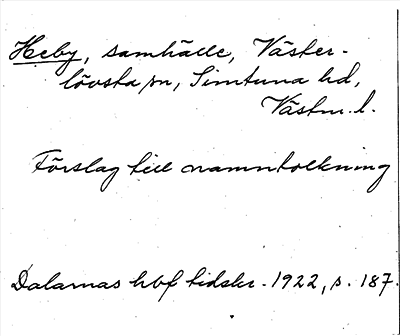 Heby, samhälle, Väster-
lövsta sn, Simtuna hd,
Västm. l.
Förslag till namntolkning
Dalarnas hbf tidskr. 1922, s. 187.